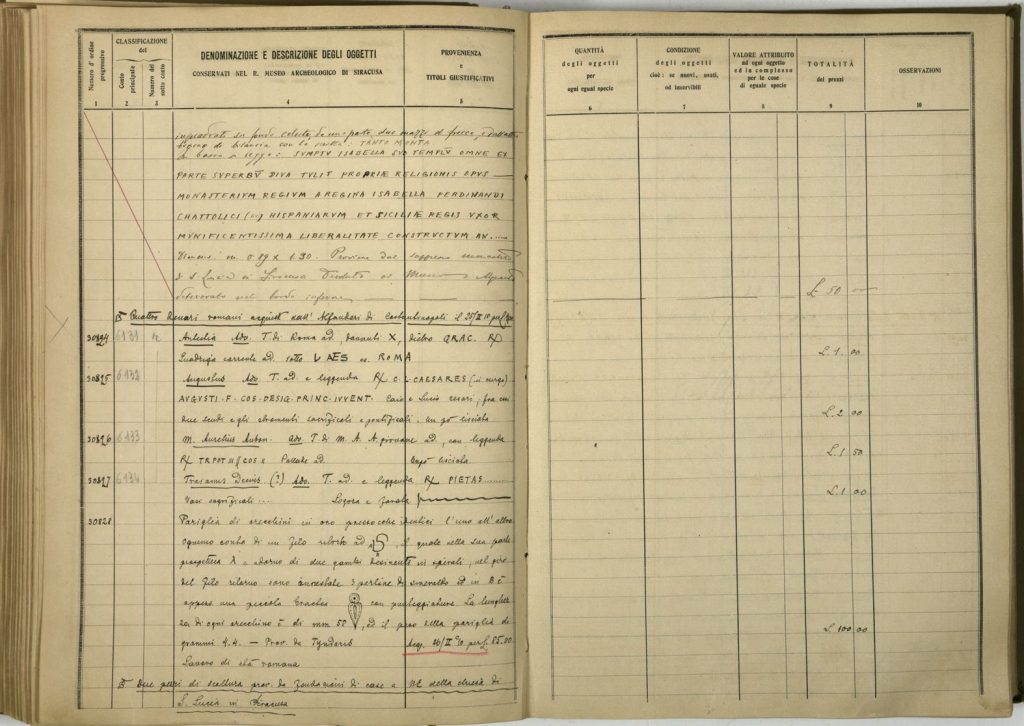 Numero d'ordine progressivo
CLASSIFICAZIONE del
Conto principale
Numero del sotto conto
DENOMINAZIONE E DESCRIZIONE DEGLI OGGETTI
CONSERVATI NEL R. MUSEO ARCHEOLOGICO DI SIRACUSA
PROVENIENZA
e
TITOLI GIUSTIFICATIVI
1 2 3 4 5
inquadrati su fondo celeste, da una parte, due mazzi di frecce, e dall'altra
di bilancia con la scritta: TANTO MONTA
In basso si legge: SVMPTV ISABELLA SVO TEMPLV̄ OMNE EX
PARTE SVPERBV̄ DIVA TVLIT PROPRIÆ RELIGIONIS OPVS
MONASTERIVM REGIVM A REGINA ISABELLA FERDINANDI
CHATTOLICI (sic) HISPANIARVM ET SICILIÆ REGIS VXOR
MVNIFICENTISSIMA LIBERALITATE CONSTRVCTVM AN....
Dimens. m. 0.89 x 1.30. Proviene dal soppresso monastero
di S. Lucia in Siracusa al Museo
deteriorato nel bordo inferiore
Quattro denari romani acquist. dall' Alfandari di Costantinopoli il 25/II 10 per
30824 6131 Antestia Adv. T. di Roma ad., davanti X, dietro GRAC. R/
Quadriga corrente ad. sotto L AES es. ROMA
30825 6132 Augustus Adv. T. ad. e leggenda R/ C. L. CAESARES (in esergo)
AVGVSTI. F. COS. DESIG. PRINC. IVVENT. Caio e Lucio cesari, fra cui
due scudi e gli strumenti sacrificali e pontificali. un po' lisciata
30826 6133 M. Aurelius Anton. Adv. T. di M. A. A. giovane ad., con leggenda
R/ TR POT II COS II Pallade ad. un po' lisciata
30827 6134 Traianus Decius (?) Adv. T. ad. e leggenda R/ PIETAS......
Vasi sacrificali.... Logora e forata
30828 Pariglia di orecchini in oro pressocchè identici l'uno all'altro
Ognuno consta di un filo ritorto ad, il quale nella sua parte
A è adorno di due gambi desinenti in spirali, nel giro
del filo ritorno sono 3 perline di smeraldo ed in B è
appesa una piccola con punteggiature. La lunghez=
za di ogni orecchino è di mm 58, ed il peso della pariglia di
grammi 4.4. — Prov. da Tyndaris Acq. 26/II 910 per L. 85.00
Lavoro di età romana
Due pezzi di scoltura prov. da fondazioni di case a della chiesa di
S. Lucia in Siracusa
QUANTITÀ
degli oggetti
per
ogni egual specie
CONDIZIONE
degli oggetti
cioè: se nuovi, usati,
od inservibili
VALORE ATTRIBUITO
ad ogni oggetto
ed in complesso
per le cose
di eguale specie
TOTALITÀ
dei prezzi
OSSERVAZIONI
6 7 8 9 10
L. 50 —
L. 1 00
L. 2 00
L. 1 50
L. 1 00
L. 100 00